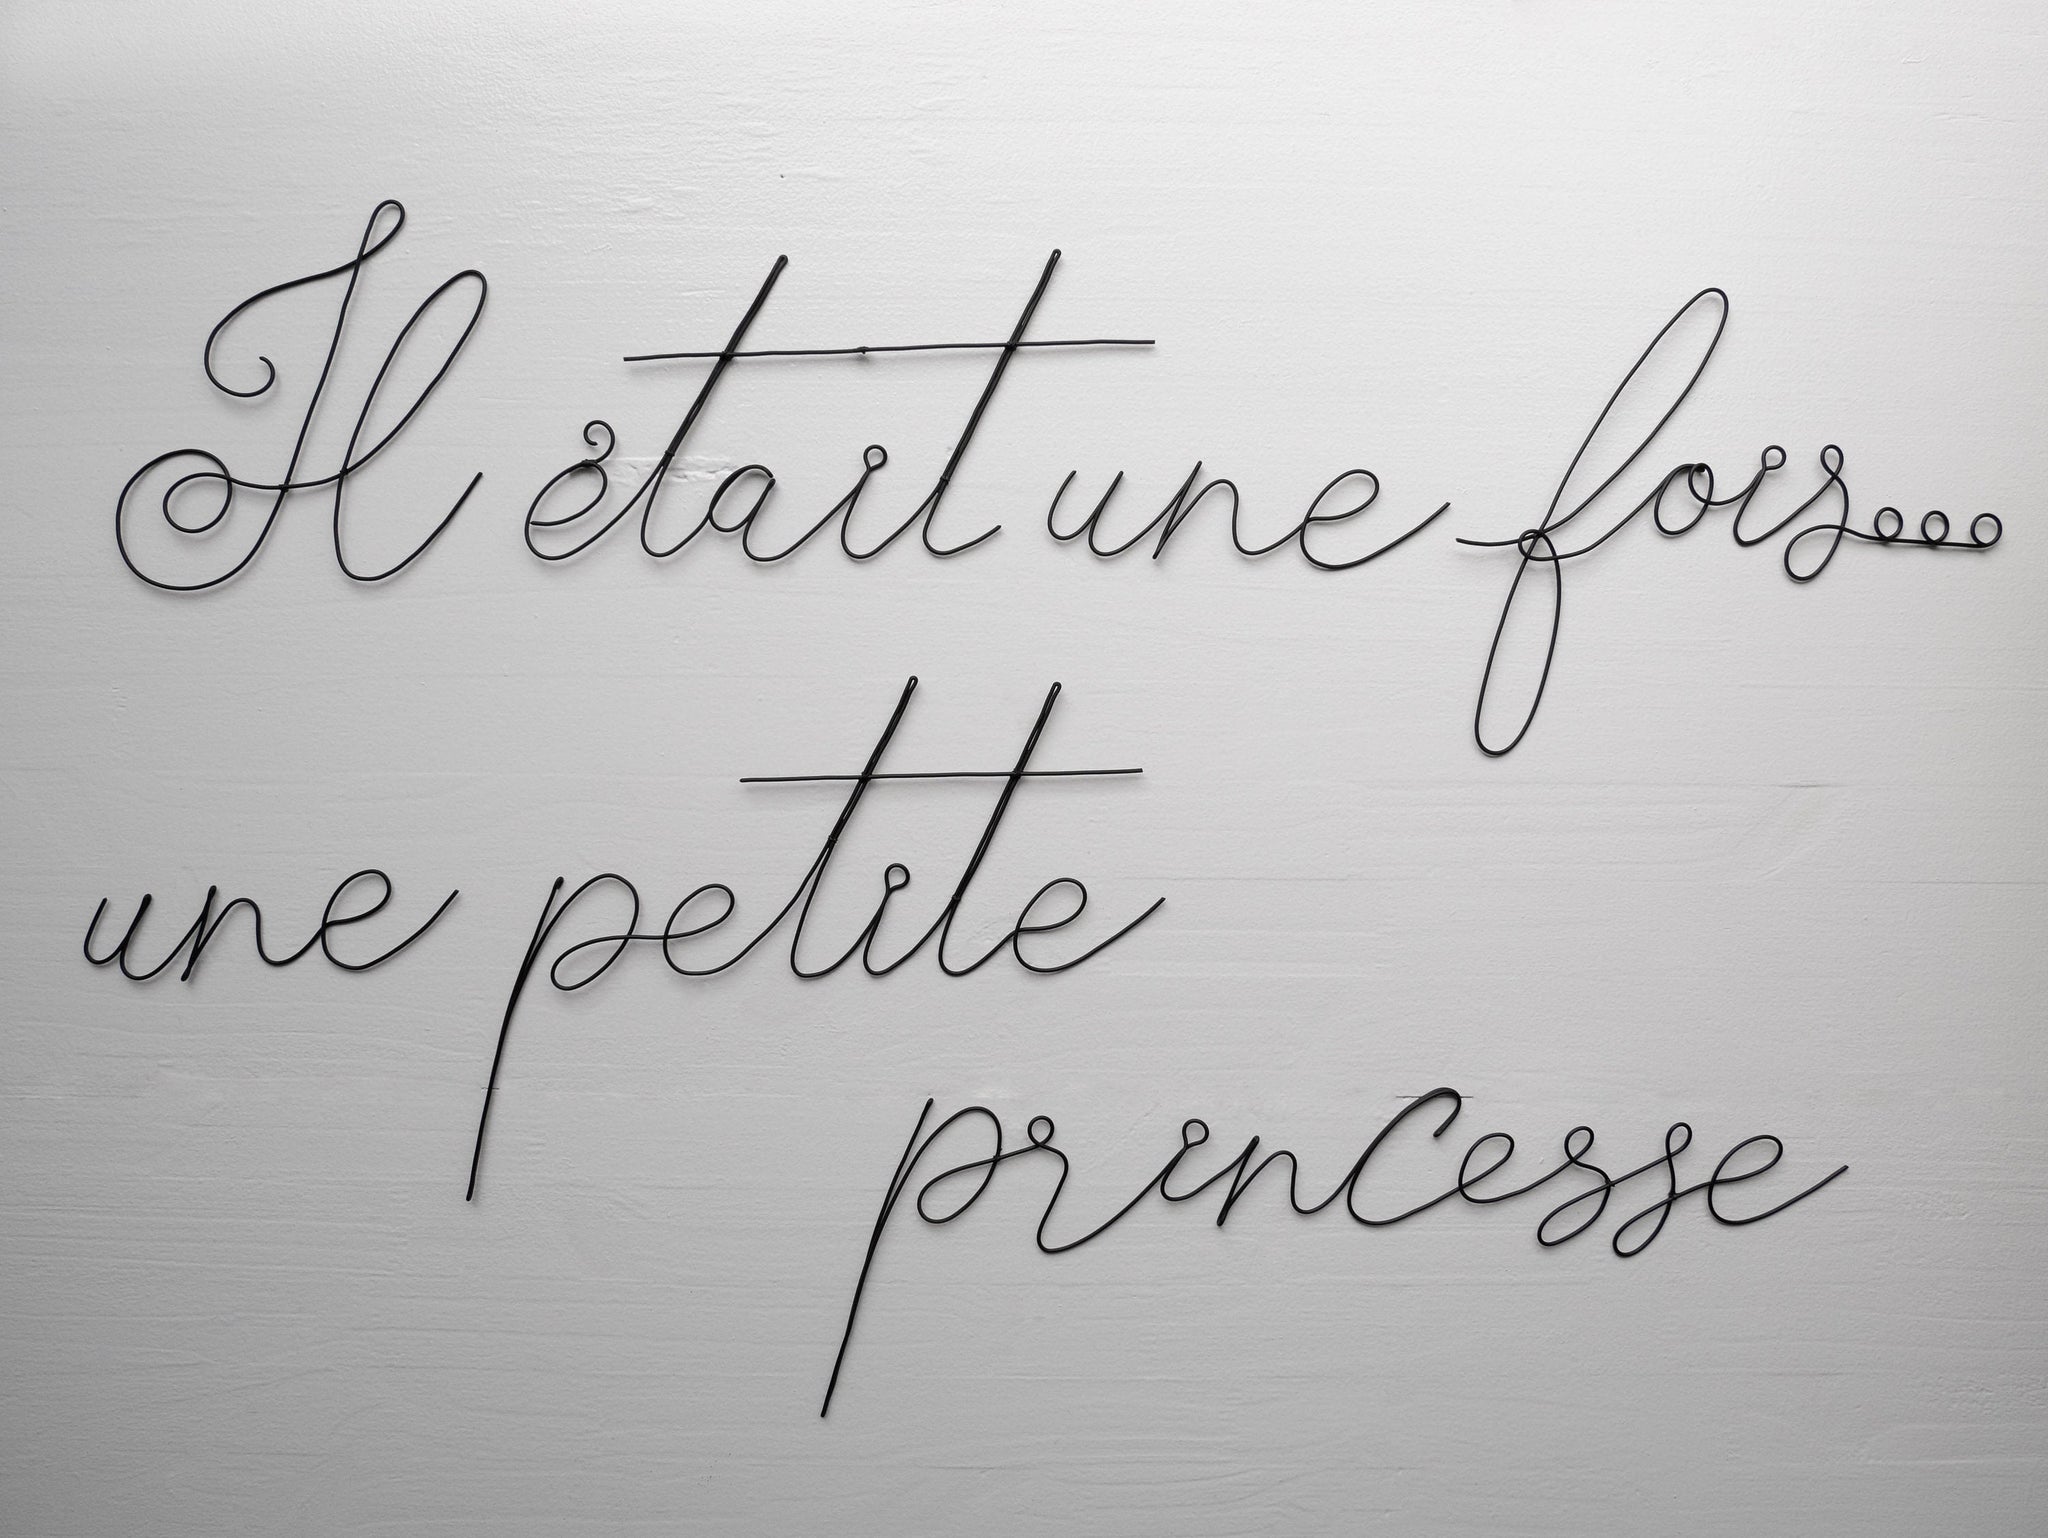 Il était une fois...
une petite
princesse